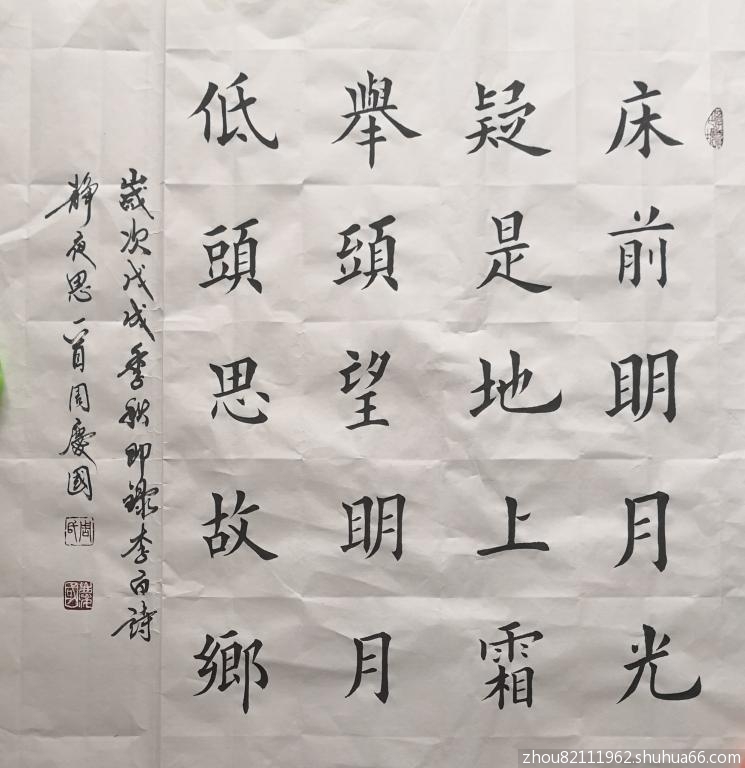 床前明月光
疑是地上霜
舉頭望明月
低頭思故鄉
歲次戊戌季秋即錄李白詩
靜夜思一首周慶國
zhou82111962.shuhua66.com